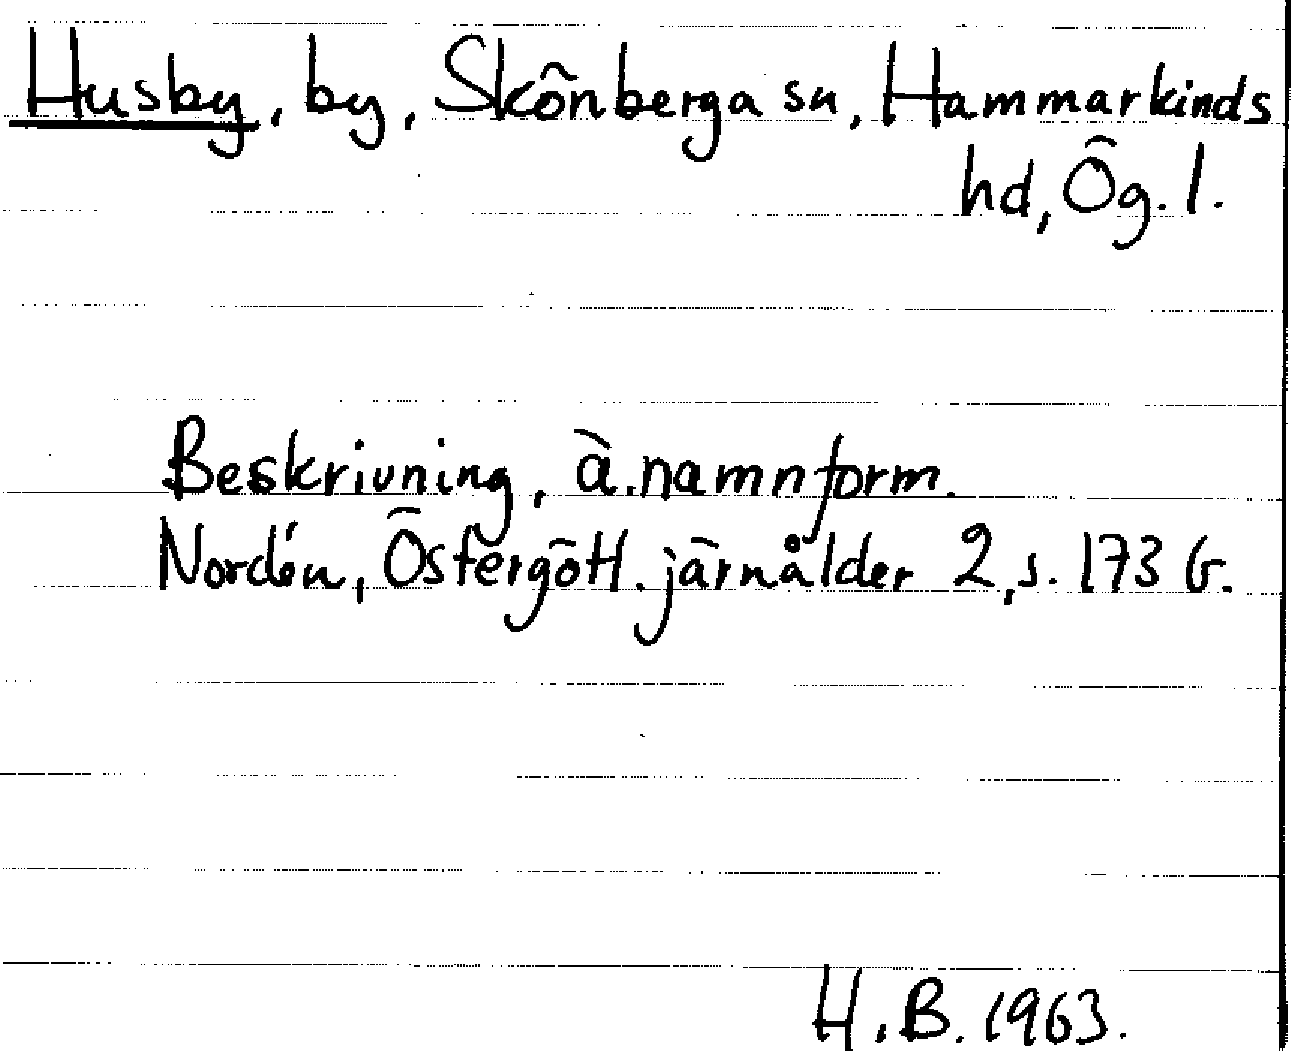 Husby, by, Skönberga sn, Hammarkinds
hd, Ög. l.
Beskrivning, ä. namnform.
Nordén, Östergötl. järnålder 2, s. 173 f.
H. B. 1963.